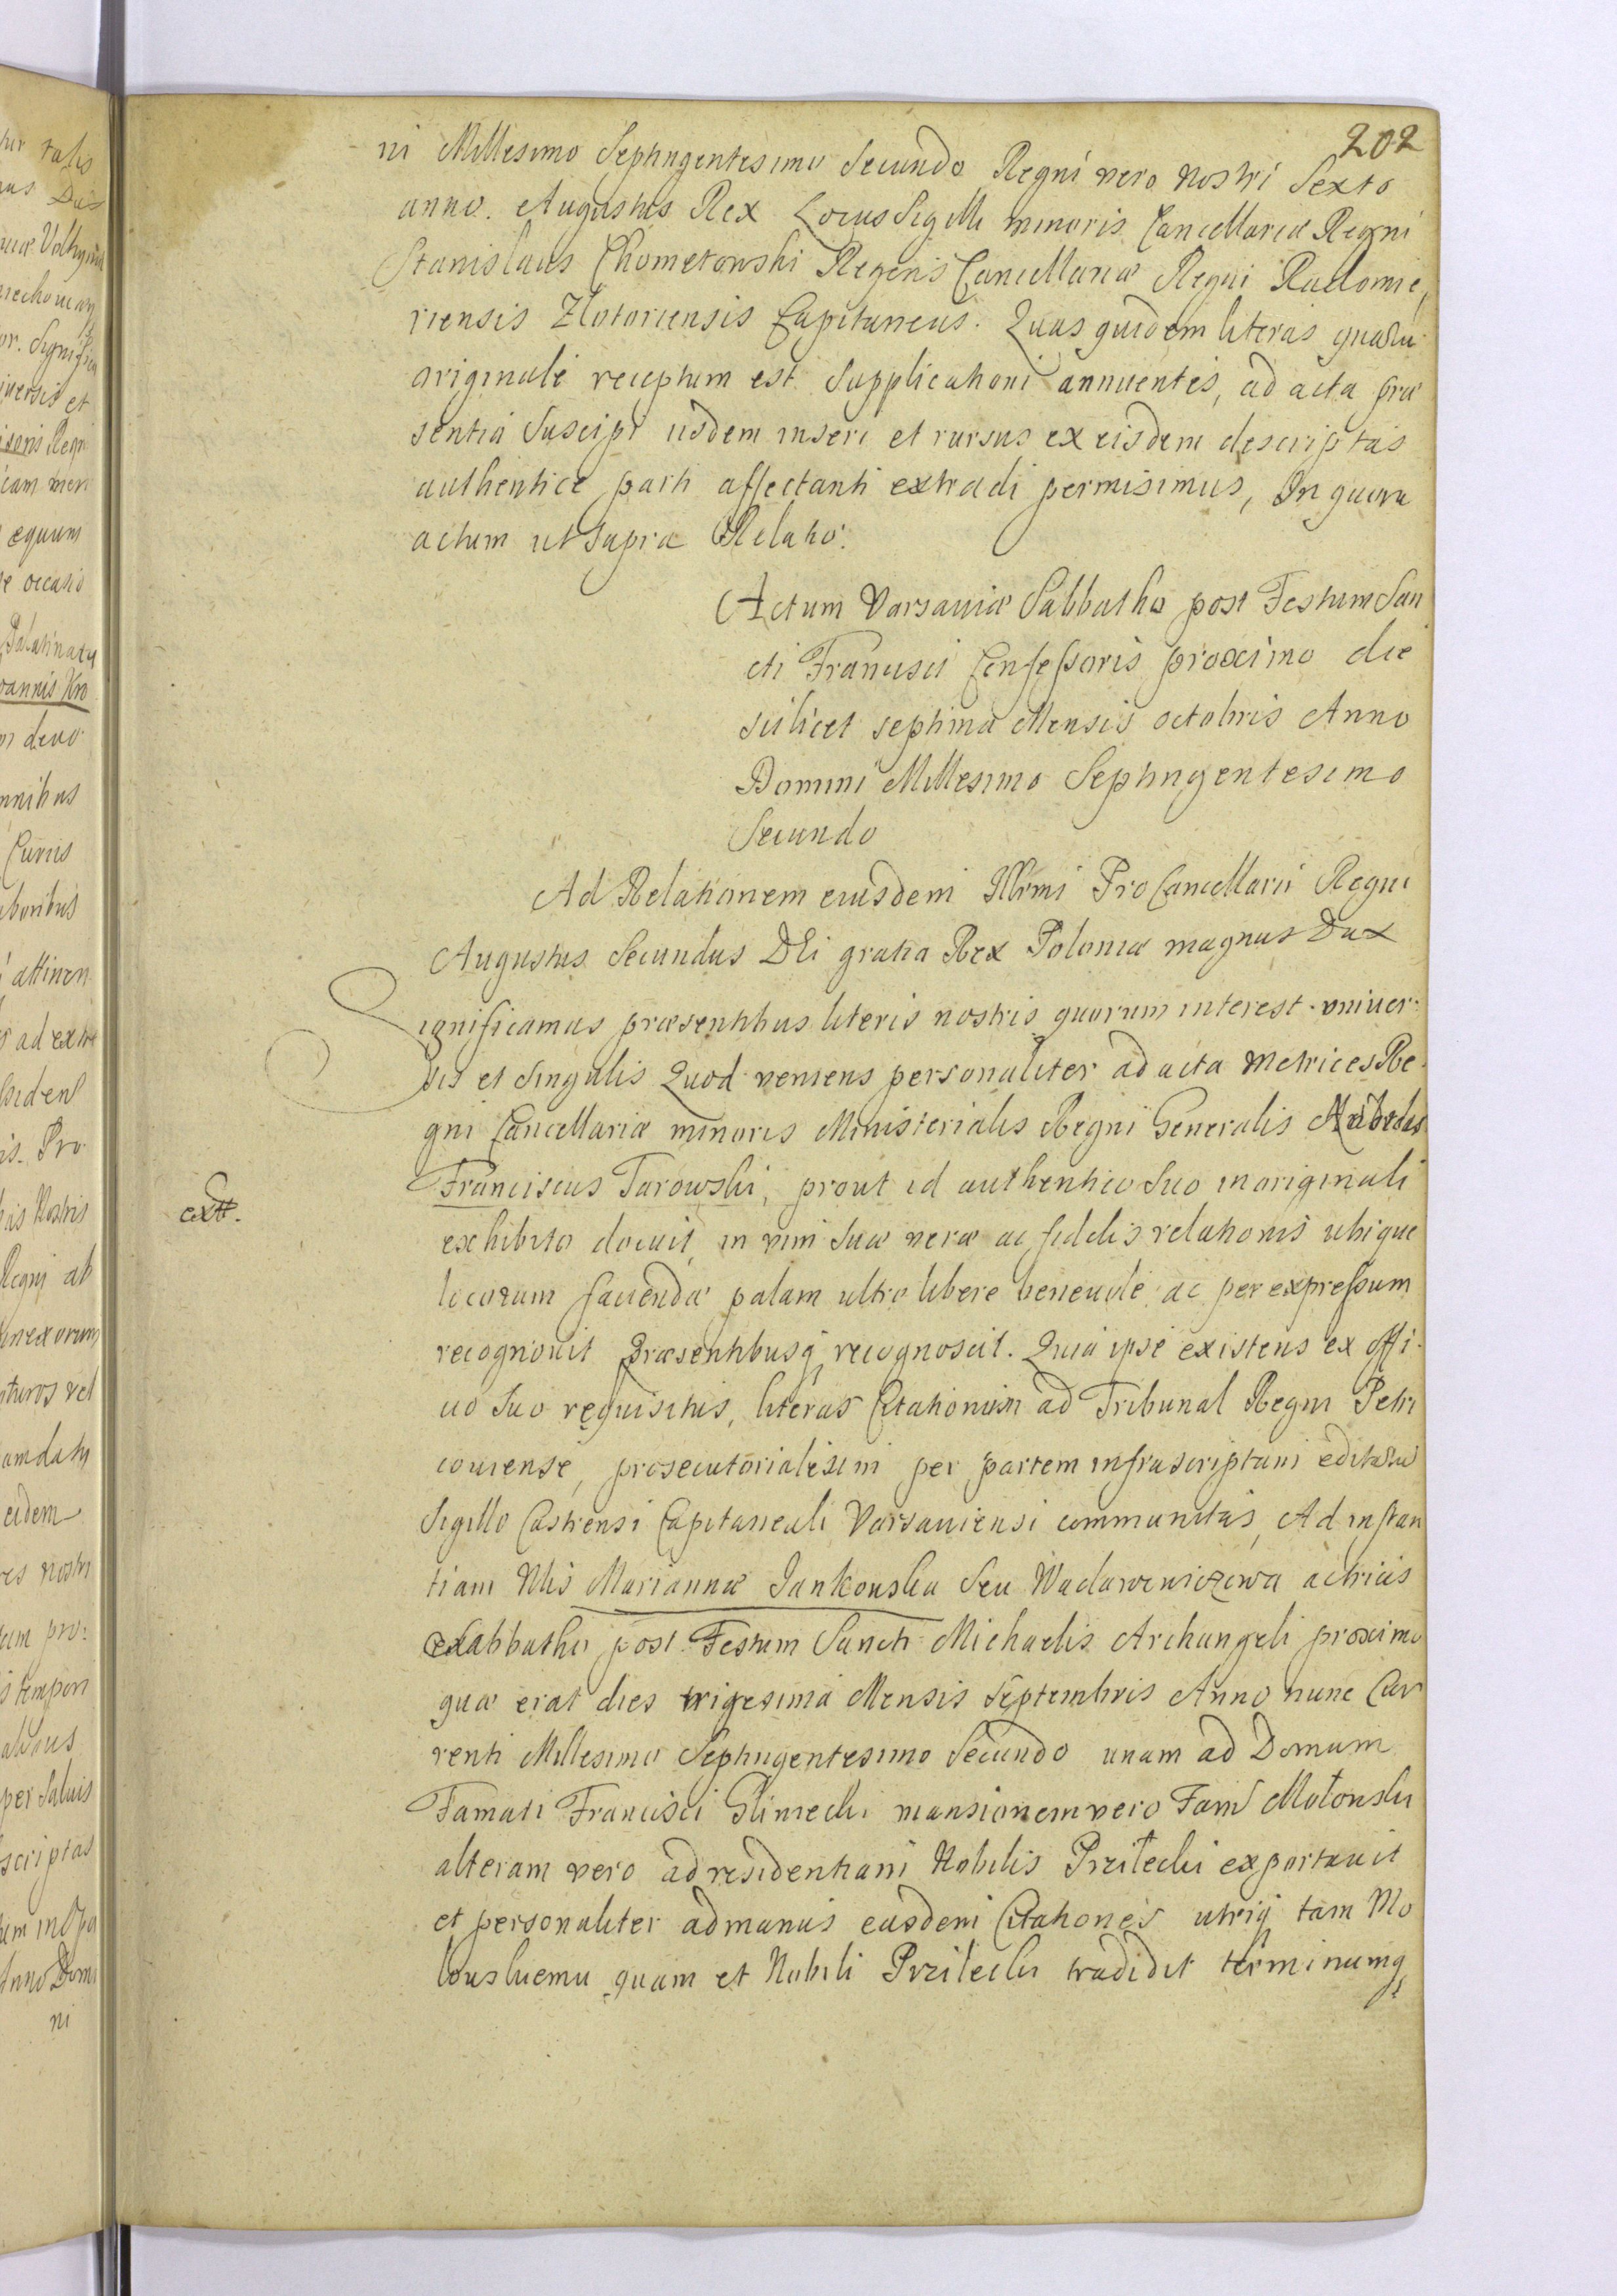 202
ni Millesimo Septingentesimo Secundo Regni vero nostri Sexto
anno. Augustus Rex Locus Sigilli minoris Cancellariæ Regni
Stanislaus Chometowski Regens Cancellariæ Regni Radomie,
riensis Zlotoriensis Capitaneus. Quas quidem literas quaru
originale receptum est Supplicationi annuentes, ad acta præ
sentia Suscipi iisdem inseri et rursus ex eisdem descriptas
authentice parti affectanti extradi permisimus, In quoru
actum ut supra Relatio.
Actum Varsaviæ Sabbatho post Festum San
cti Francisci Confessoris proximo die
scilicet septima Mensis octobris Anno
Domini Millesimo Septingentesimo
Secundo
Ad Relationem eiusdem Illrmi ProCancellarii Regni
Augustus Secundus DEi gratia Rex Poloniæ magnus Dux
Significamus præsentibus literis nostris quorum interest univer
sis et Singulis Quod veniens personaliter ad acta Metrices Re
gni Cancellariæ minoris Ministerialis Regni Generalis
Franciscus Tarowski, prout id authentico suo in originali
extt.
exhibito docuit in vim suæ veræ ac fidelis relationis ubique
locorum faciendæ palam ultro libere benevole ac per expressum
recognovit Præsentibusq recognoscit. Quia ipse existens ex offi
cio suo requisitus, literas Citationum ad Tribunal Regni Petri
coviense, prosecutorialesim per partem infrascriptam editaru
Sigillo Castrensi Capitaneali Varsaviensi communitas, Ad instan
tiam Nlis Mariannæ Jankowska Seu Waclawowiczowa actricis
Sabbatho post Festum Sancti Michaelis Archangeli proximo
quæ erat dies trigesima Mensis Septembris Anno nunc Cur
renti Millesimo Septingentesimo Secundo unam ad Domum
Famati Francisci Gliniecki mansionem vero Fam Motowski
alteram vero ad residentiam Nobilis Przilecki exportavit
et personaliter ad manus easdem Citationes utriq tam Mo
towskiemu quam et Nobili Przilecki tradidit terminumq